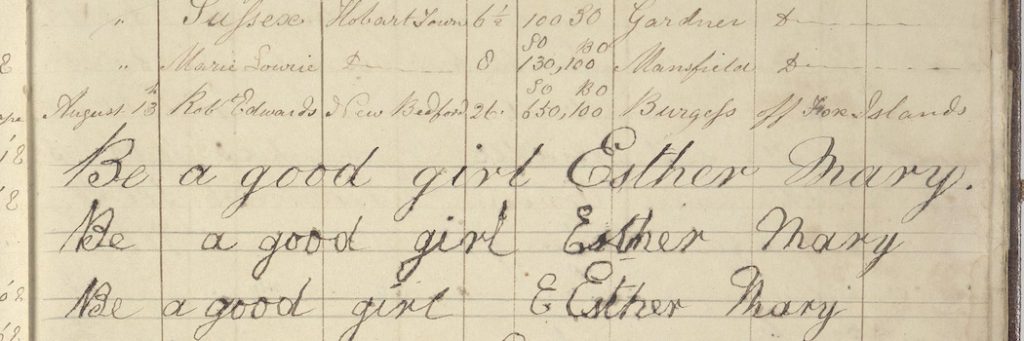 " Sussex Hobart Town 6½ 100 30 Gardner D
50 BO
8 " Marie Lowrie D 8 130,100 Mansfield D
50 BO
August 13th Robt Edwards New Bedford 26. 650,100 Burgess off Fox Islands
Be a good girl Esther Mary.
Be a good girl Esther Mary
Be a good girl E Esther Mary